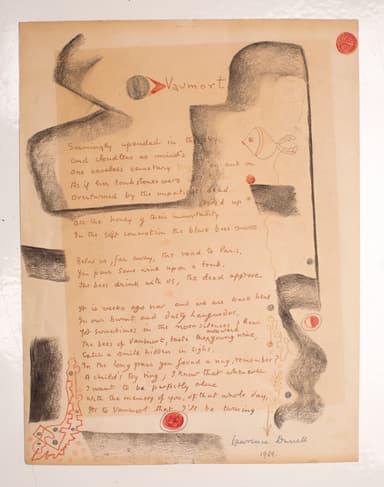 Vaumort
Seemingly upended in the sky
and cloudless as minds
one careless cemetery on and on
As if her tombstones were
Overturned by the impatient dead
stored up
all the honey of their immortality
In the soft commotion the black bees make
Below us, far away, the road to Paris,
You pour some wine upon a tomb,
The bees drink with us, the dead approve
It is weeks ago now and we are back here
In our burnt and dusty Languedoc,
Yet sometimes in the noon silences I hear
The bees of Vaumort, taste the young wine,
Catch a smile hidden in sighs,
In the long grass you found a ring, remember?
A child's toy ring, I know that whenever
I want to be perfectly alone
With the memory of you, of that whole day,
It's to Vaumort that I'll be turning
Lawrence Durrell